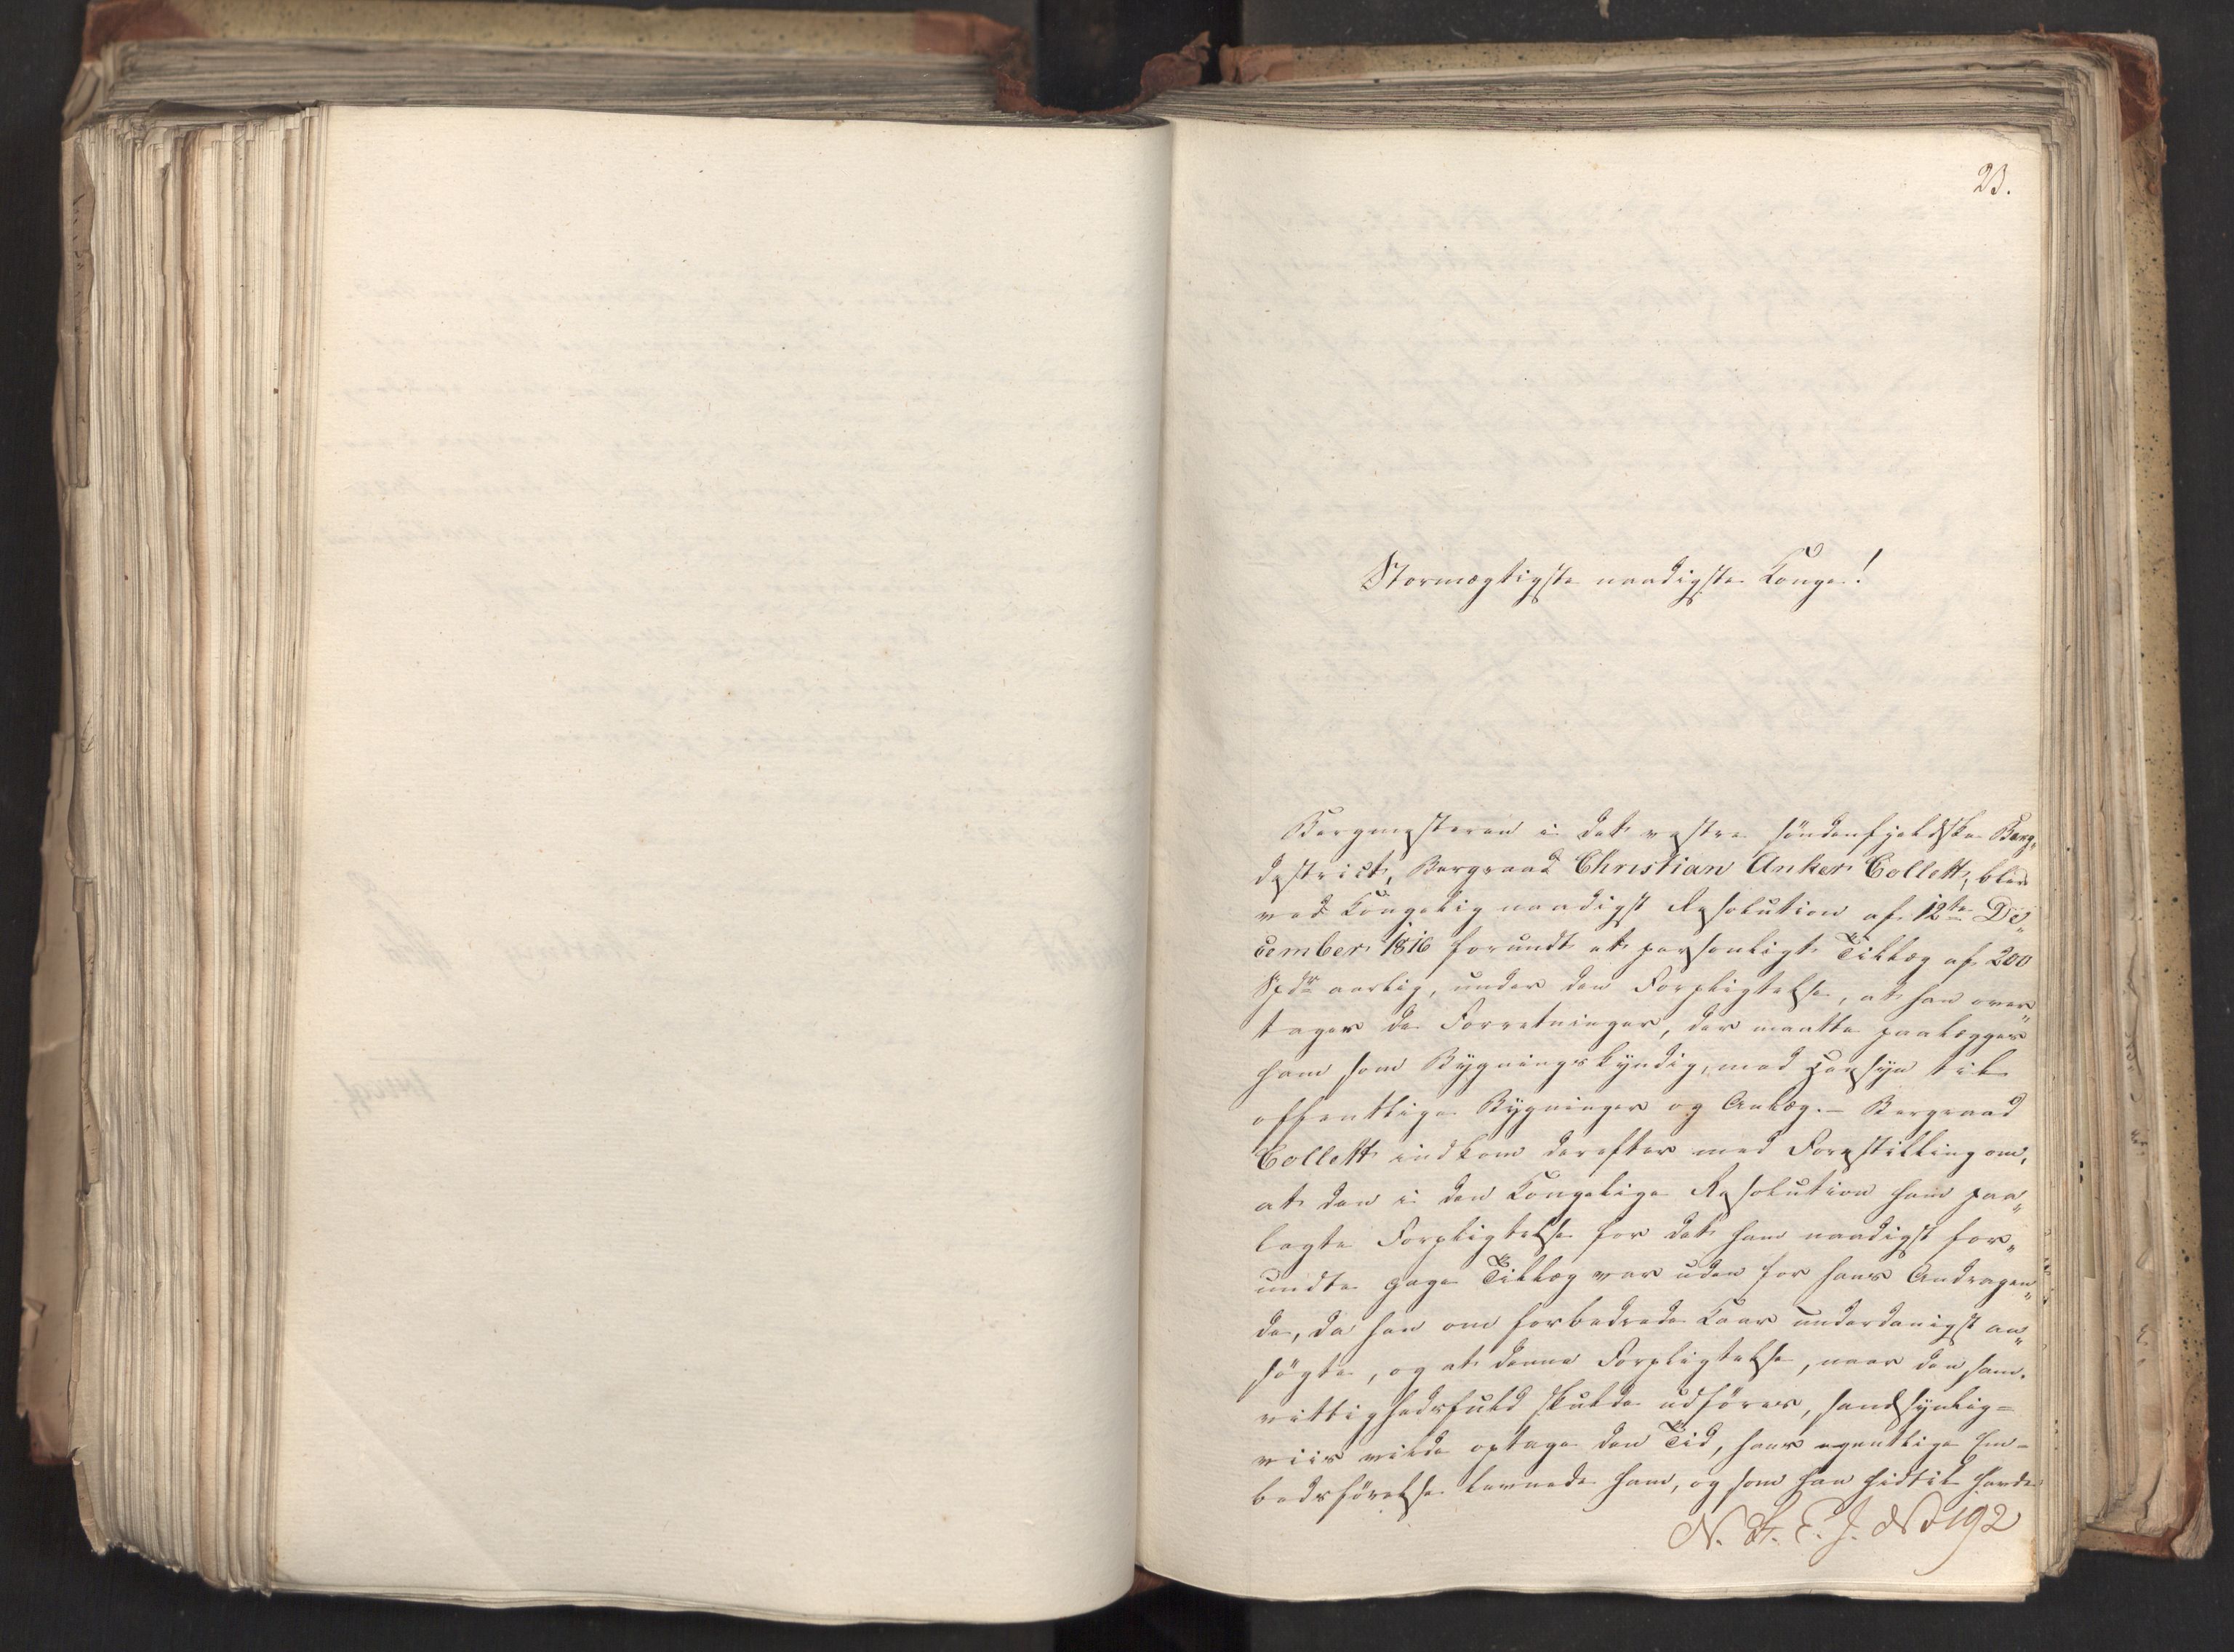 23.
Stormægtigste naadigste Konge!
Bergmesteren i det vestre søndenfjeldske Berg„
destrict, Bergraad Christian Anker Collett, blev
ved Kongelig naadigst Resolution af 12te De„
cember 1816 forundt et personligt Tillæg af 200
Spdr aarlig, under den Forpligtelse, at han over„
tager de Forretninger, der maatte paalægges
ham som Bygningskyndig, med Hensyn til
offentlige Bygninger og Anlæg. – Bergraad
Collett indkom derefter med Forestilling om,
at den i den Kongelige Resolution ham paa„
lagte Forpligtelse for det ham naadigst for„
undte Gage Tillæg var uden for hans Andragen„
de, da han om forbedrede Kaar underdanigst an„
søgte, og at denne Forpligtelse, naar den sam„
vittighedsfuld skulde udføres, sandsynlig=
viis vilde optage den Tid, hans egentlige Em=
bedsførelse levnede ham, og som han hidtil havde
N. St. E. J. No 192